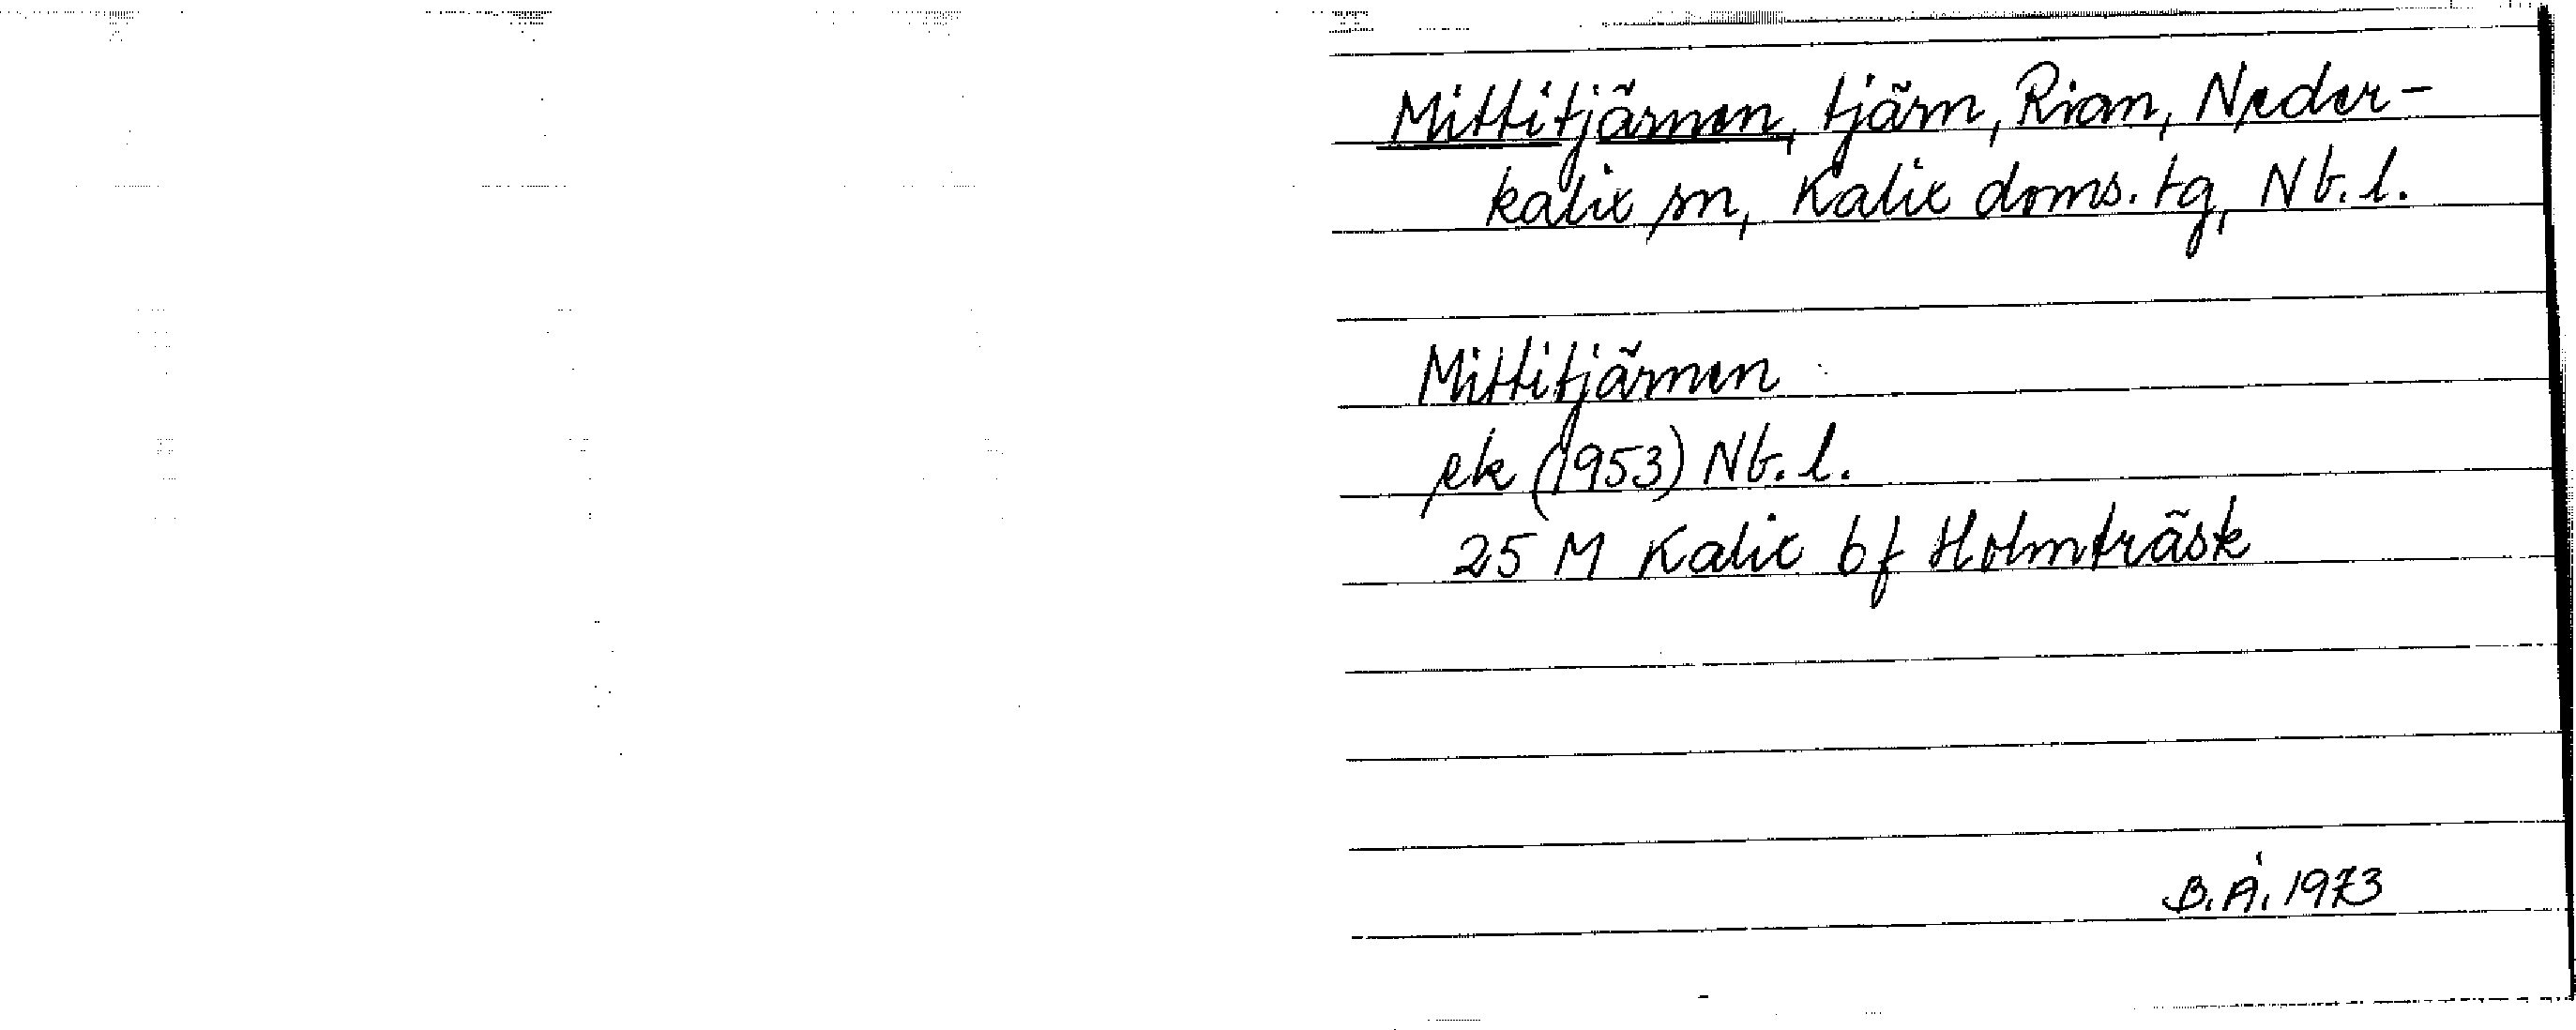 Mittitjärnen, tjärn, Rian, Neder-
kalix sn, Kalix doms. tg, Nb. l.
Mittitjärnen
ek (1953) Nb. l.
25 M Kalix bf Holmträsk
B. Å. 1973